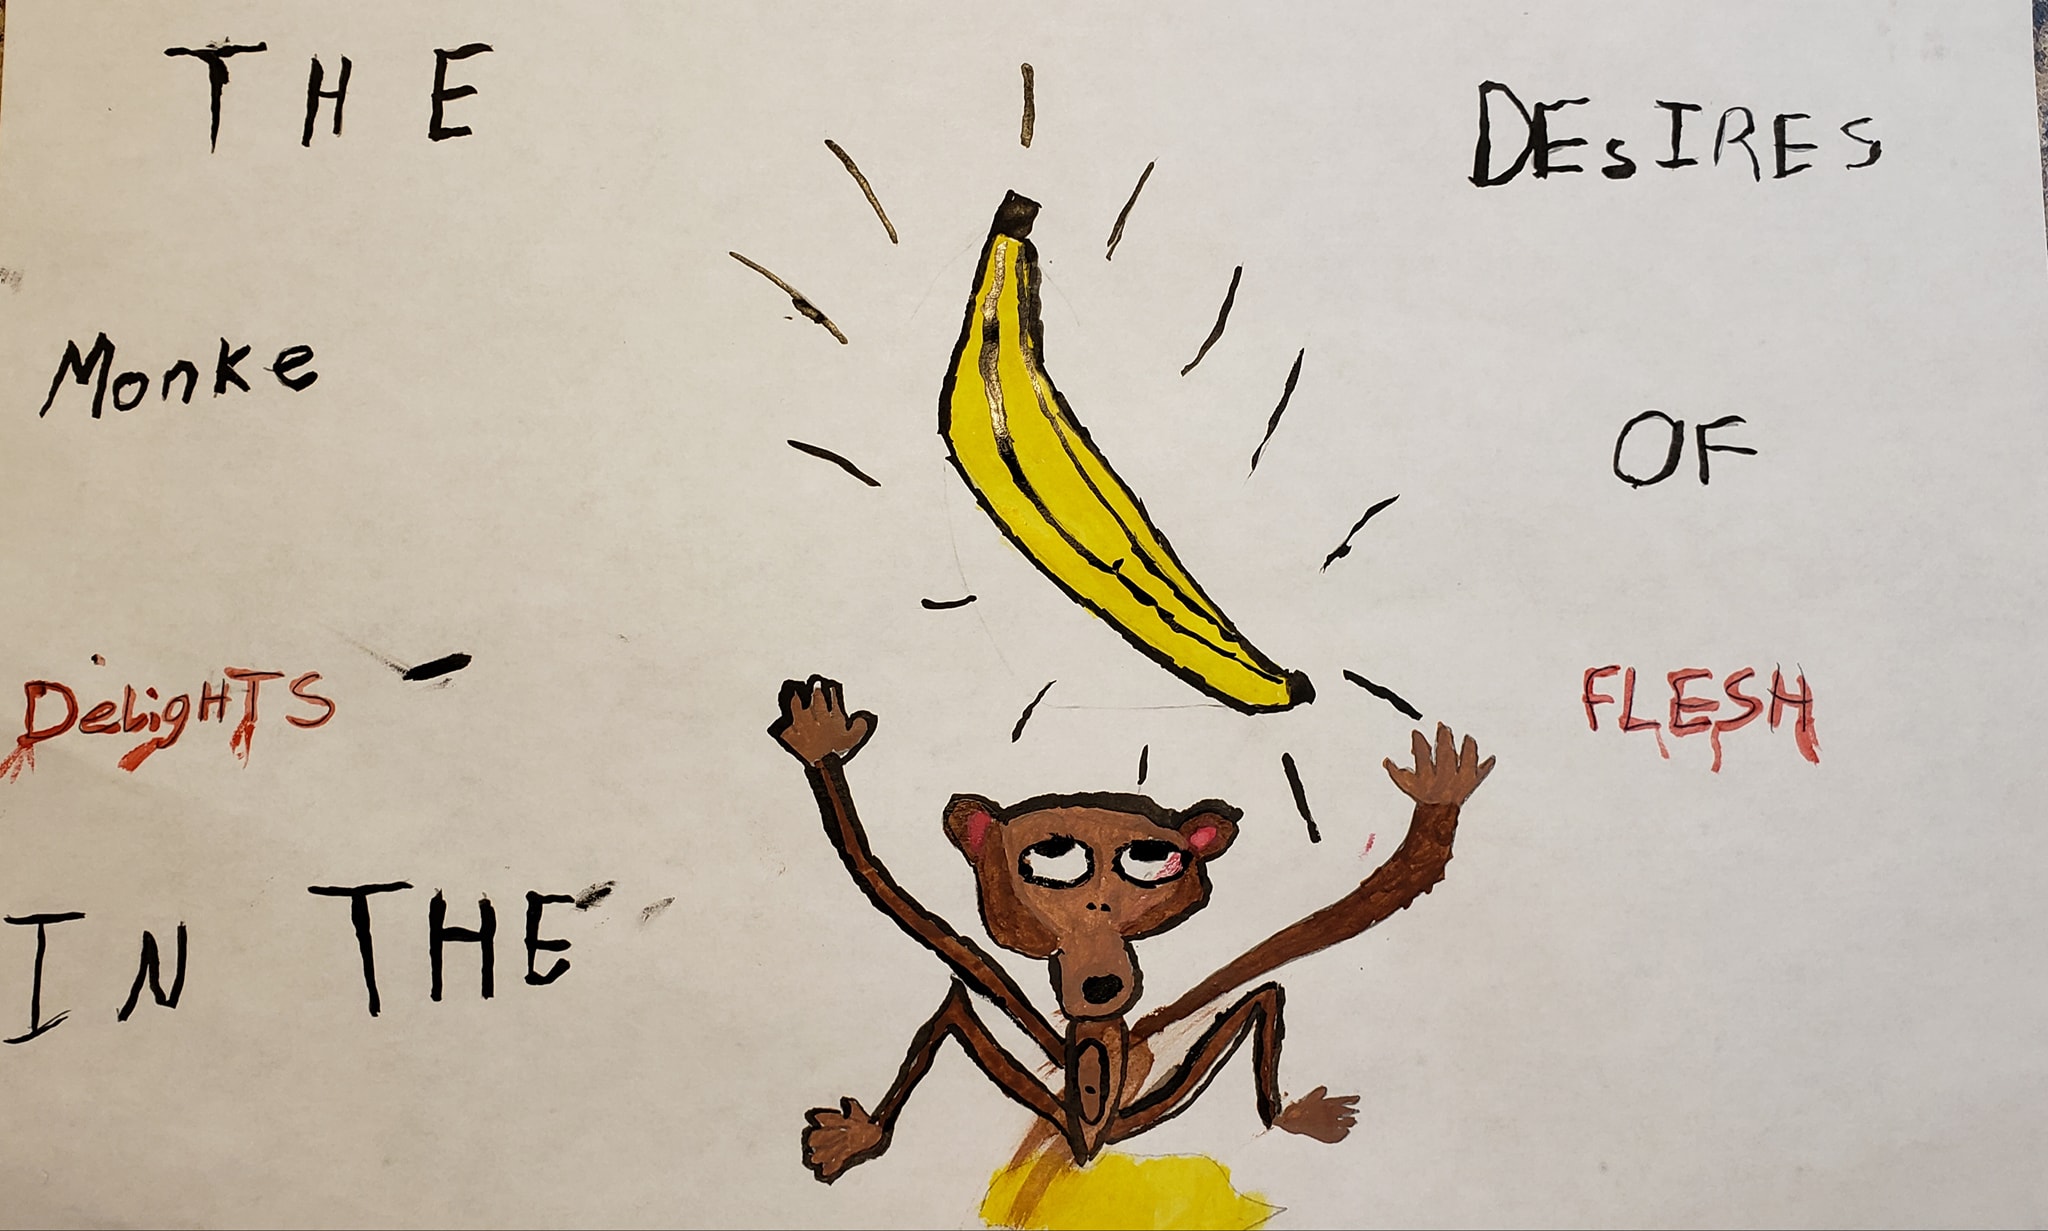 THE
Monke
DeLigHTS
IN THE
DEsIRES
OF
FLESH